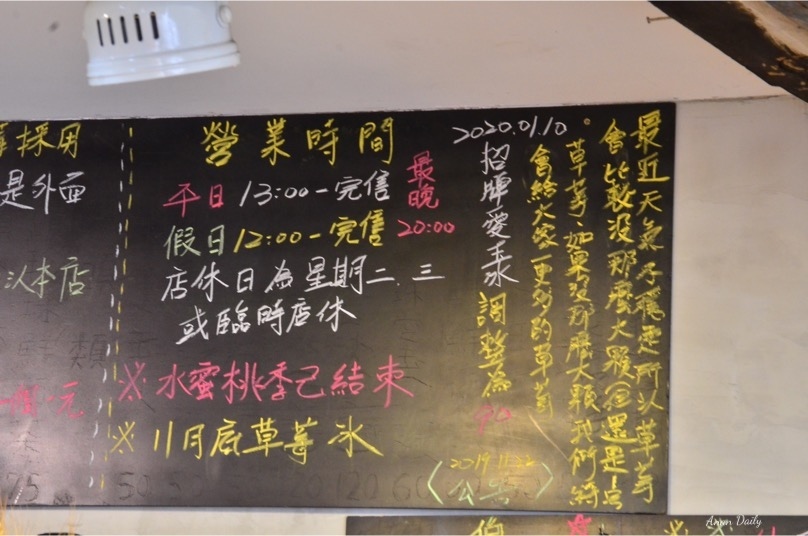 採用
是外面
以本店
元
營業時間
平日 13:00-完售
假日 12:00-完售
最晚
20:00
店休日為星期二.三
或臨時店休
※水蜜桃季已結束
※11月底草莓冰
2020.01.10
招牌愛玉冰 調整為90
2019.11.22
公告
最近天氣不穩定所以草莓
會比較沒那麼大顆(但還是
草莓、如果沒那麼大顆我們將
會給大家更多的草莓
Anan Daily